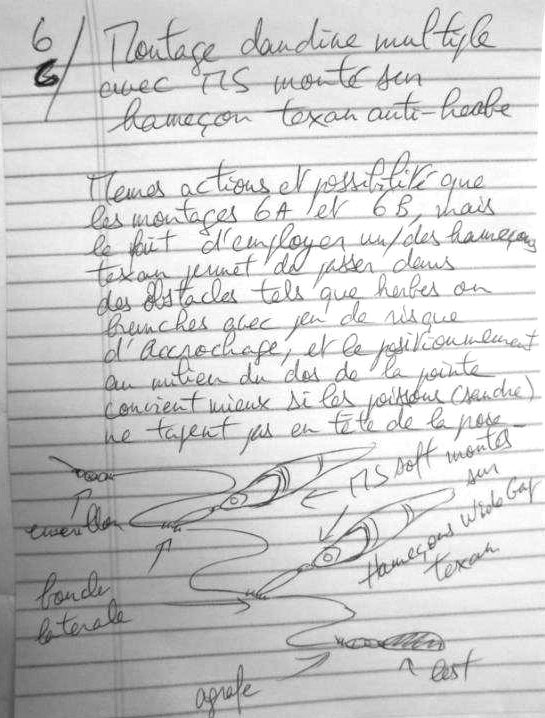 6
6/ Montage dandine multiple
avec MS monté sur
hameçon texan anti-herbe
Memes actions et possibilité que
les montages 6A et 6B, mais
le fait d'employer un/des hameçons
texan permet de passer dans
des obstacles tels que herbes ou
branches avec peu de risque
d'accrochage, et le positionnement
au milieu du dos de la pointe
convient mieux si les poissons (sandre)
ne tapent pas en tête de la pose
MS soft montés
sur
Hameçons Wide Gap
texan
emerillon
boucle
laterale
agrafe
lest